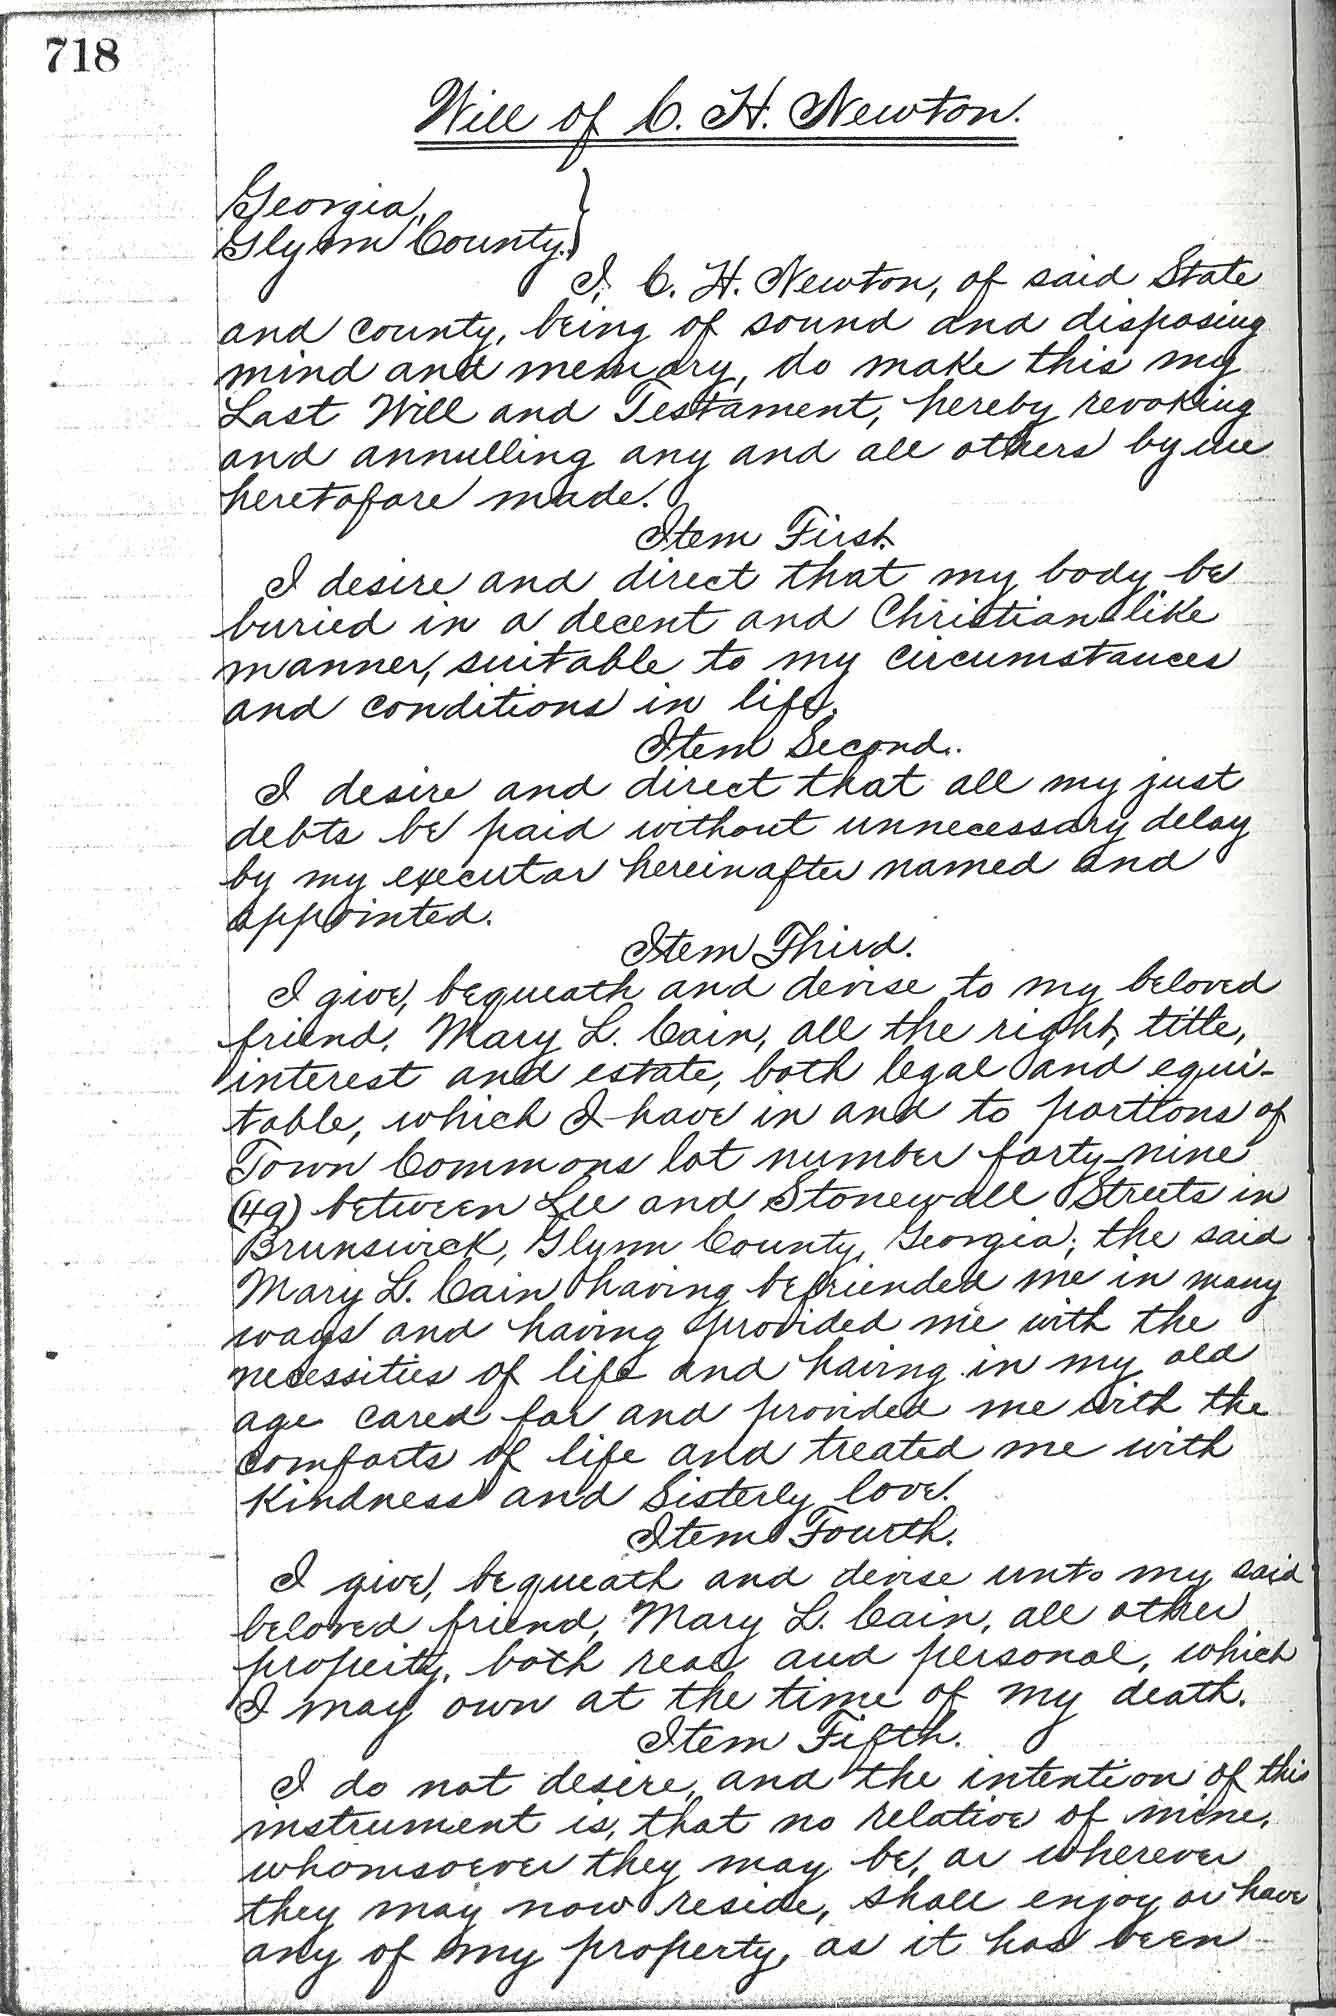 718
Will of C. H. Newton.
Georgia,
Glynn County. }
I, C. H. Newton, of said State
and county, being of sound and disposing
mind and memory, do make this my
Last Will and Testament, hereby revoking
and annulling any and all others by me
heretofore made.
Item First.
I desire and direct that my body be
buried in a decent and Christian-like
manner, suitable to my circumstances
and conditions in life.
Item Second.
I desire and direct that all my just
debts be paid without unnecessary delay
by my executor hereinafter named and
appointed.
Item Third.
I give, bequeath and devise to my beloved
friend, Mary L. Cain, all the right, title,
interest and estate, both legal and equi-
table, which I have in and to portions of
Town Commons lot number forty-nine
(49) between Lee and Stonewall Streets in
Brunswick, Glynn County, Georgia; the said
Mary L. Cain having befriended me in many
ways and having provided me with the
necessities of life and having in my old
age cared for and provided me with the
comforts of life and treated me with
kindness and Sisterly love.
Item Fourth.
I give, bequeath and devise unto my said
beloved friend, Mary L. Cain, all other
property, both real and personal, which
I may own at the time of my death.
Item Fifth.
I do not desire, and the intention of this
instrument is, that no relative of mine,
whomsoever they may be, or wherever
they may now reside, shall enjoy or have
any of my property, as it has been